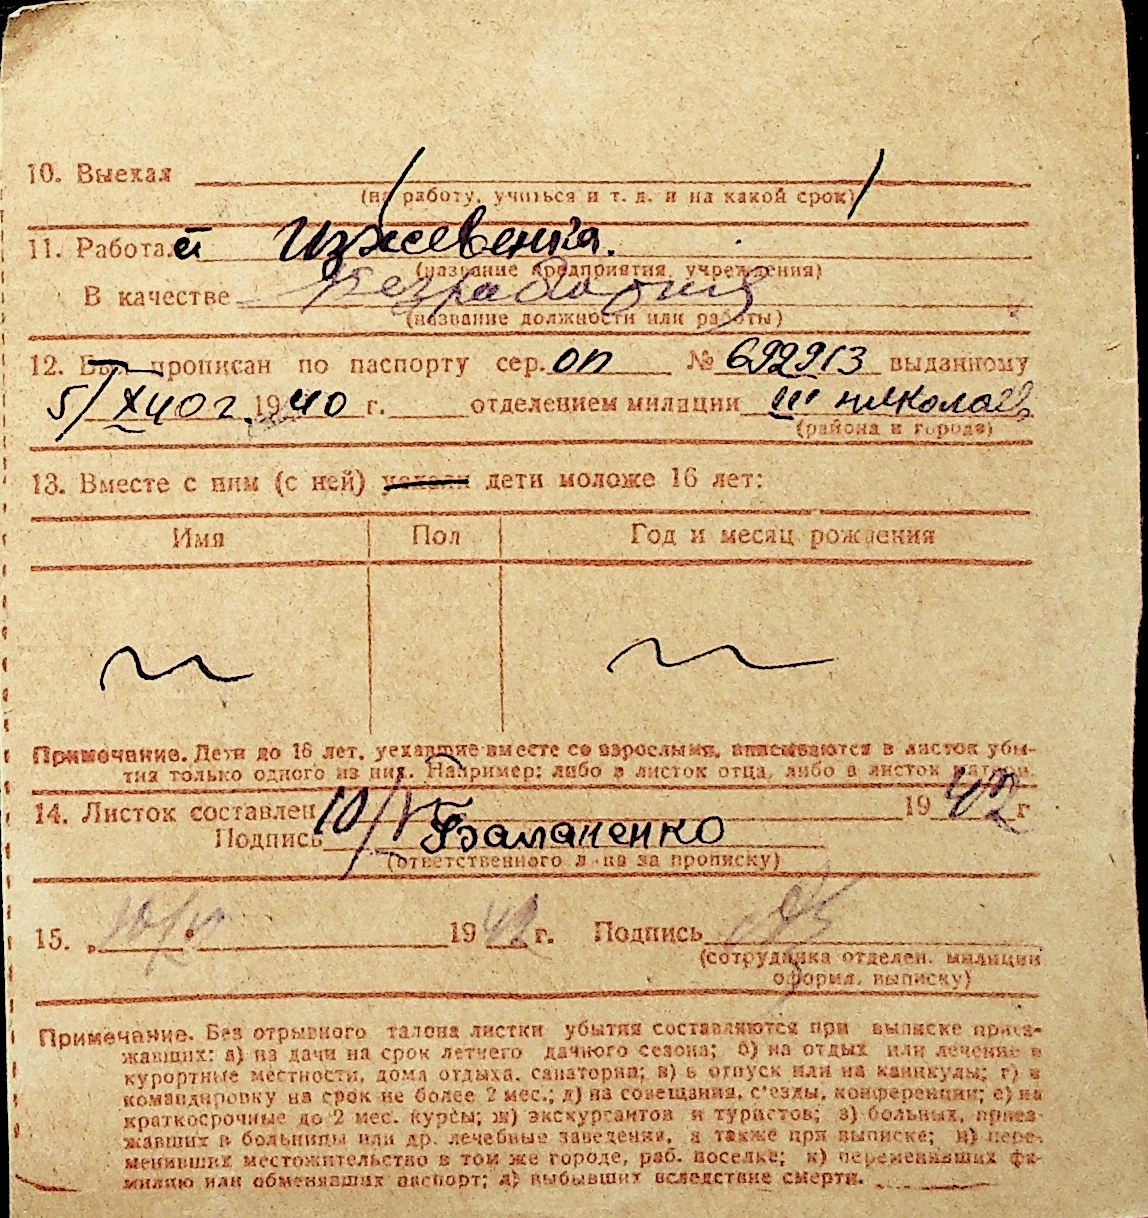 10. Выехал
(на работу, учиться и т. д. и на какой срок)
11. Работает Иждевенка.
(название предприятия, учреждения)
В качестве
(название должности или работы)
12. Был прописан по паспорту сер. ОП № 692913 выданному
5/XI 40 г. 1940 г. отделением милиции III Николаев
(района и города)
13. Вместе с ним (с ней) уехали дети моложе 16 лет:
Имя Пол Год и месяц рождения
Примечание. Дети до 16 лет, уехавшие вместе со взрослыми, вписываются в листок убы-
тия только одного из них. Например: либо в листок отца, либо в листок матери.
14. Листок составлен 10/V 1942 г
Подпись Баланенко
(ответственного лица за прописку)
15. 1942 г. Подпись
(сотрудника отделен. милиции
оформл. выписку)
Примечание. Без отрывного талона листки убытия составляются при выписке приез-
жавших: а) на дачи на срок летнего дачного сезона; б) на отдых или лечение в
курортные местности, дома отдыха, санатории; в) в отпуск или на каникулы; г) в
командировку на срок не более 2 мес.; д) на совещания, с'езды, конференции; е) на
краткосрочные до 2 мес. курсы; ж) экскурсантов и туристов; з) больных, приез-
жавших в больницы или др. лечебные заведения, а также при выписке; и) пере-
менивших местожительство в том же городе, раб. поселке; к) переменивших фа-
милию или обменявших паспорт; л) выбывших вследствие смерти.